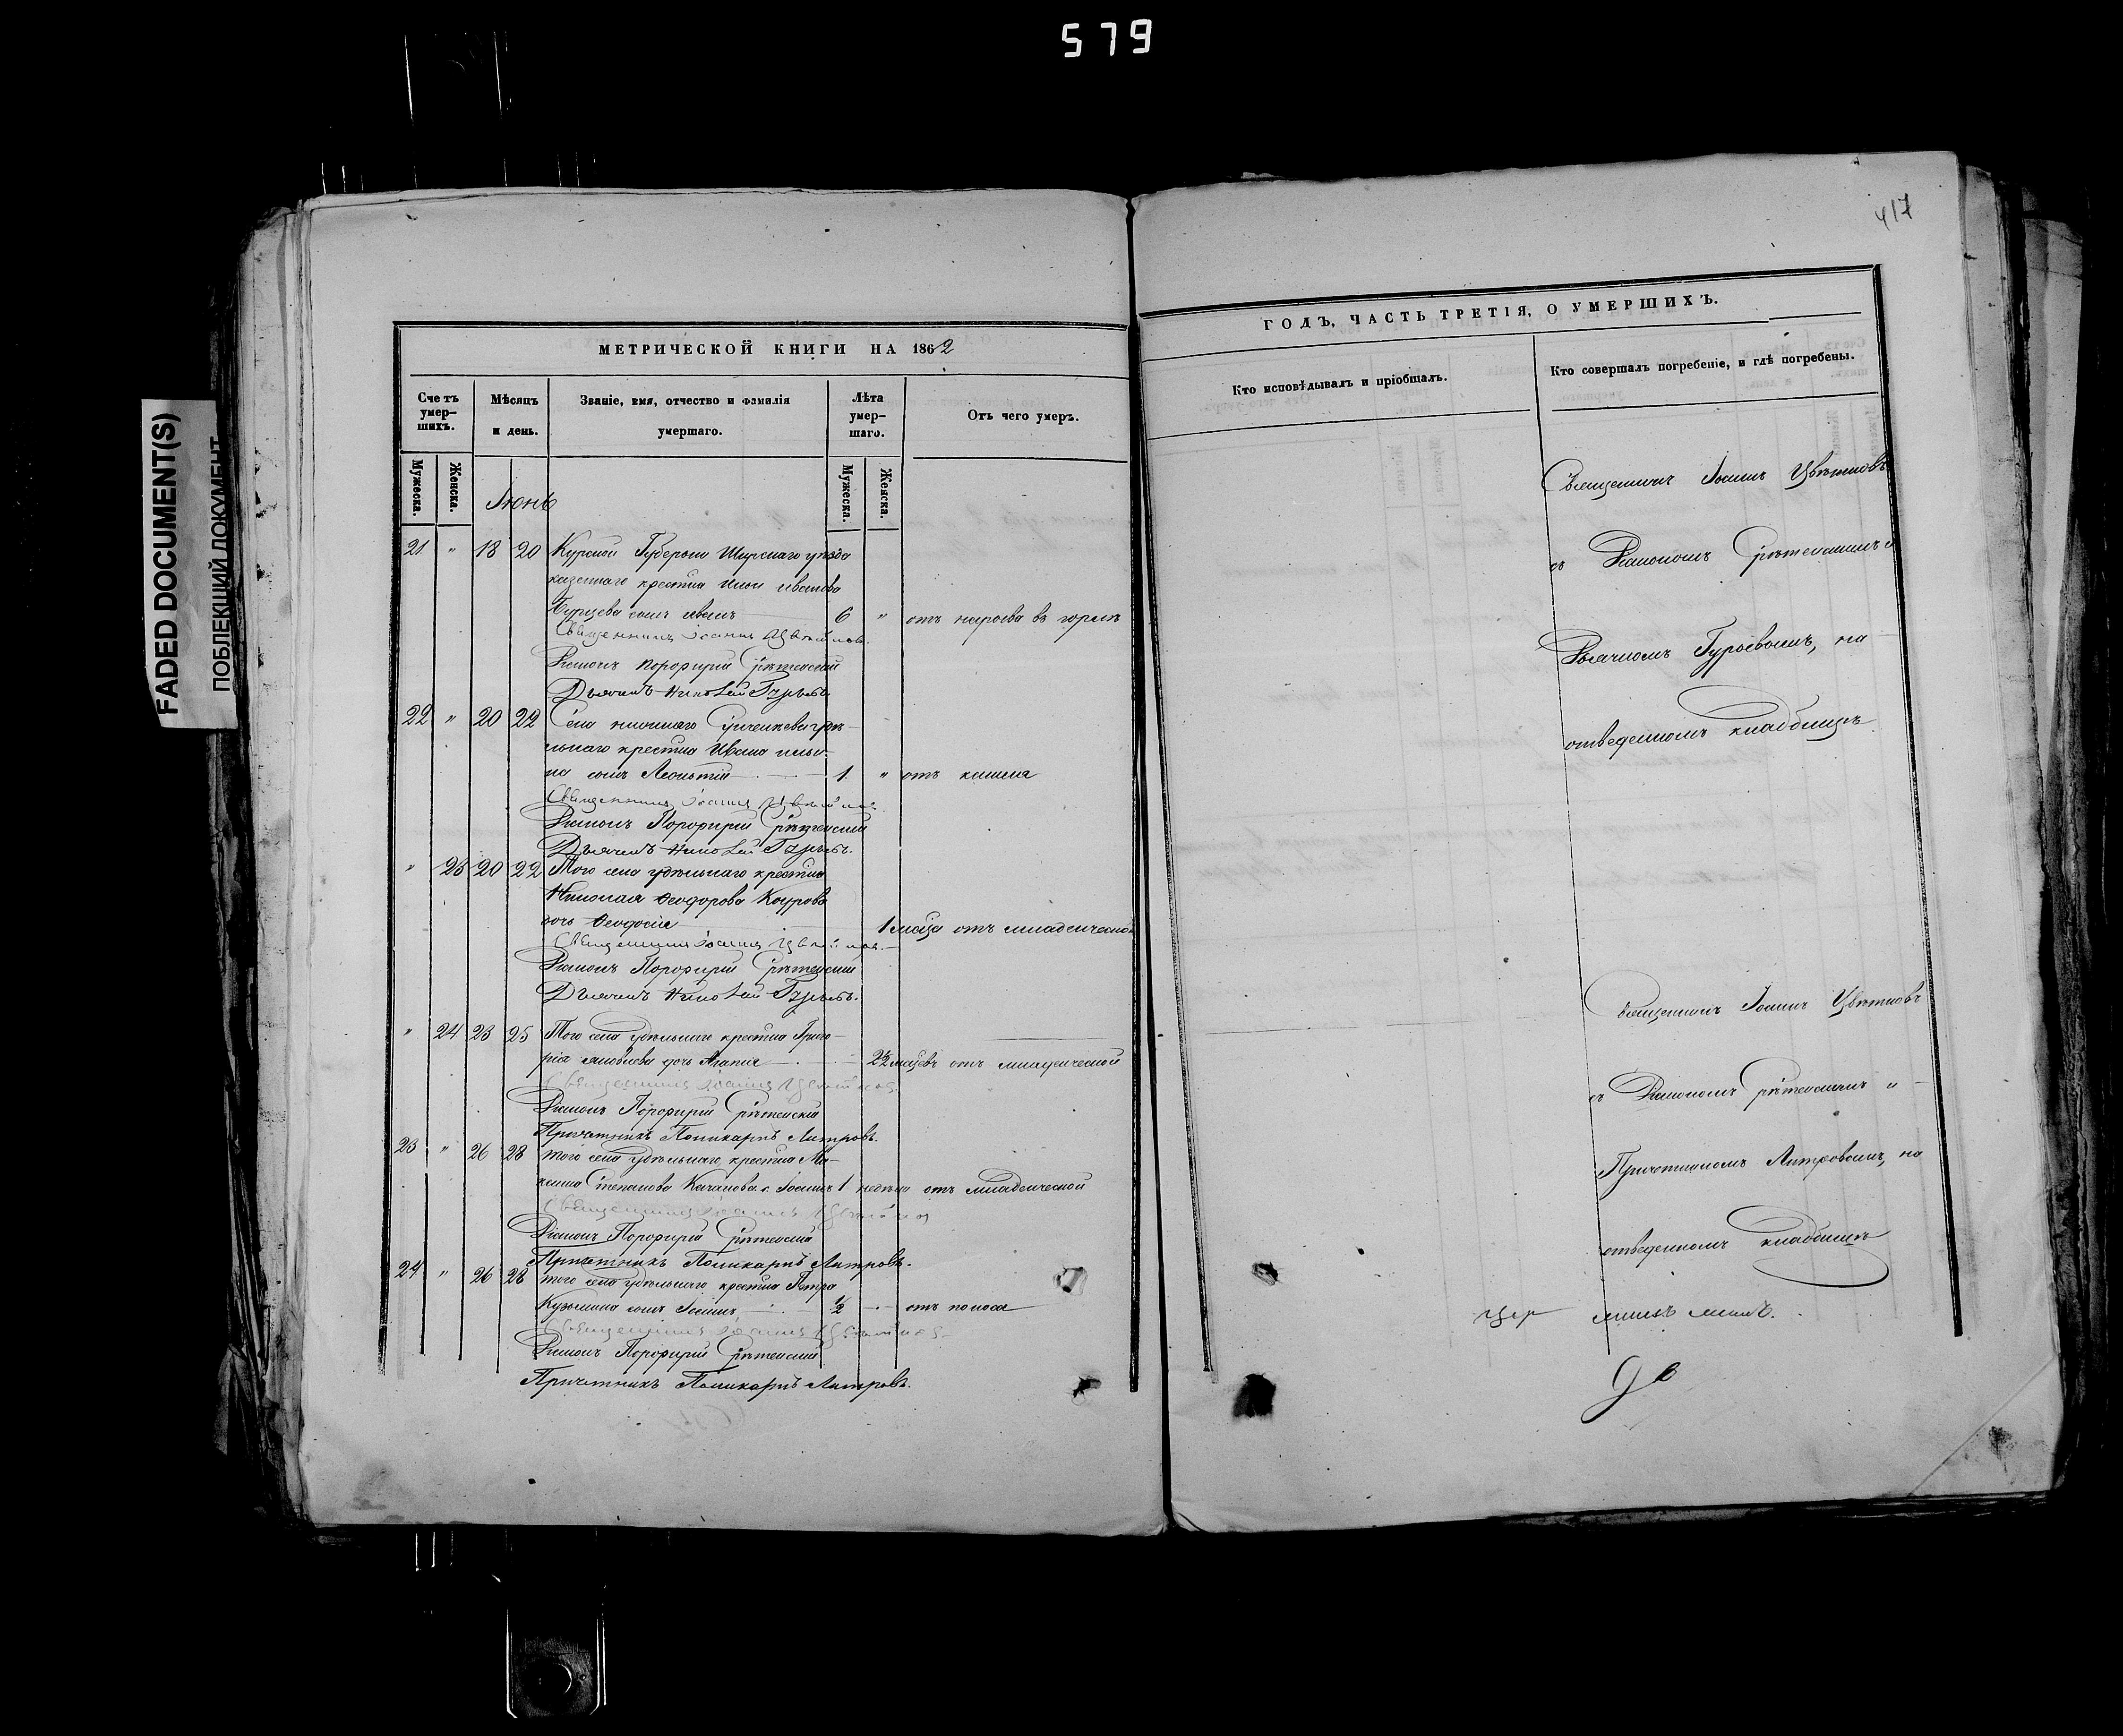 579
417
FADED DOCUMENT(S)
ПОБЛЕКШИЙ ДОКУМЕНТ
МЕТРИЧЕСКОЙ КНИГИ НА 1862
Счетъ умер-
шихъ.
Мужеска.
Женска.
Мѣсяцъ
и день.
Званіе, имя, отчество и фамилія
умершаго.
Лѣта
умер-
шаго.
Мужеска.
Женска.
Отъ чего умеръ.
Іюнь
21 " 18 20 Курской Губерніи уѣзда
казеннаго крестьянина Ивана
сынъ Иванъ 6 " отъ нарыва въ горлѣ
Священникъ Іоаннъ Цвѣтковъ
Діаконъ Порфирій Срѣтенскій
Дьячекъ Николай Гурьевъ
22 " 20 22 Села
крестьянина Ивана
сынъ Леонтій 1 " отъ кашля
Священникъ Іоаннъ Цвѣтковъ
Діаконъ Порфирій Срѣтенскій
Дьячекъ Николай Гурьевъ.
" 23 20 22 Того села удѣльнаго крестьянина
Николая Ѳеодорова
дочь Ѳеодосія 1 мѣсяца отъ младенческой
Священникъ Іоаннъ Цвѣтковъ
Діаконъ Порфирій Срѣтенскій
Дьячекъ Николай Гурьевъ.
" 24 23 25 Того села удѣльнаго крестьянина Григо-
рія дочь 2½ отъ младенческой
Священникъ Іоаннъ Цвѣтковъ
Діаконъ Порфирій Срѣтенскій
Причетникъ Поликарпъ Литровъ.
23 " 26 28 того села удѣльнаго крестьянина Ма-
Степанова с. Іоаннъ 1 недѣли отъ младенческой
Священникъ Іоаннъ Цвѣтковъ
Діаконъ Порфирій Срѣтенскій
Причетникъ Поликарпъ Литровъ.
24 " 26 28 того села удѣльнаго крестьянина Петра
Кузьмина сынъ Іоаннъ ½ отъ поноса
Священникъ Іоаннъ Цвѣтковъ
Діаконъ Порфирій Срѣтенскій
Причетникъ Поликарпъ Литровъ.
ГОДЪ, ЧАСТЬ ТРЕТІЯ, О УМЕРШИХЪ.
Кто исповѣдывалъ и пріобщалъ.
Кто совершалъ погребеніе, и гдѣ погребены.
Священникъ Іоаннъ Цвѣтковъ
съ Діакономъ Срѣтенскимъ и
Дьячкомъ Гурьевымъ, на
отведенномъ кладбищѣ
Священникъ Іоаннъ Цвѣтковъ
съ Діакономъ Срѣтенскимъ и
Причетникомъ Литровымъ, на
отведенномъ кладбищѣ